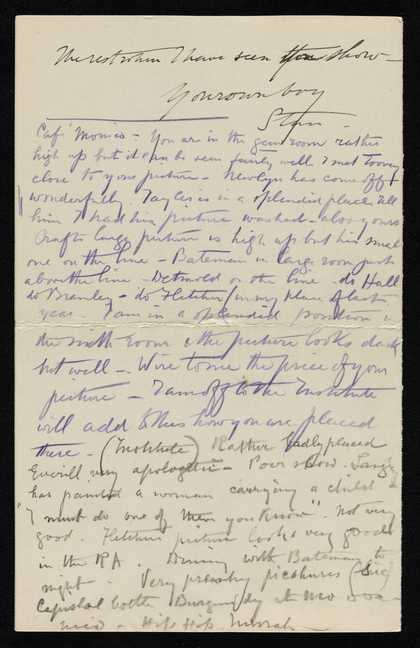 The rest when I have seen the show —
Your own boy
Stan —
Café Monico — You are in the gem room rather
high up but it can be seen fairly well & not
close to your picture — Newlyn has come off
wonderfully. Tayler is in a splendid place tell
him I had his picture washed — also yours
Crafts large picture is high up but his small
one on the line — Bateman in large room just
above the line — Detmold on the line — do Hall
do Bramley — do Fletcher in my place of last
year. I am in a splendid position in
the sixth room & the picture looks dark
but well — Wire to me the price of your
picture — I am off to the Institute
will add to this how you are placed
there — (Institute) Rather badly placed
Everill very apologetic — Poor show. Langley
has painted a woman carrying a child &
"I must do one of them you know". not very
good. Fletchers picture looks very good
in the RA. Dining with Bateman to
night. Very pretty pictures (sic)
Capital bottle Burgundy at Mo
nico — Hip Hip Hurrah